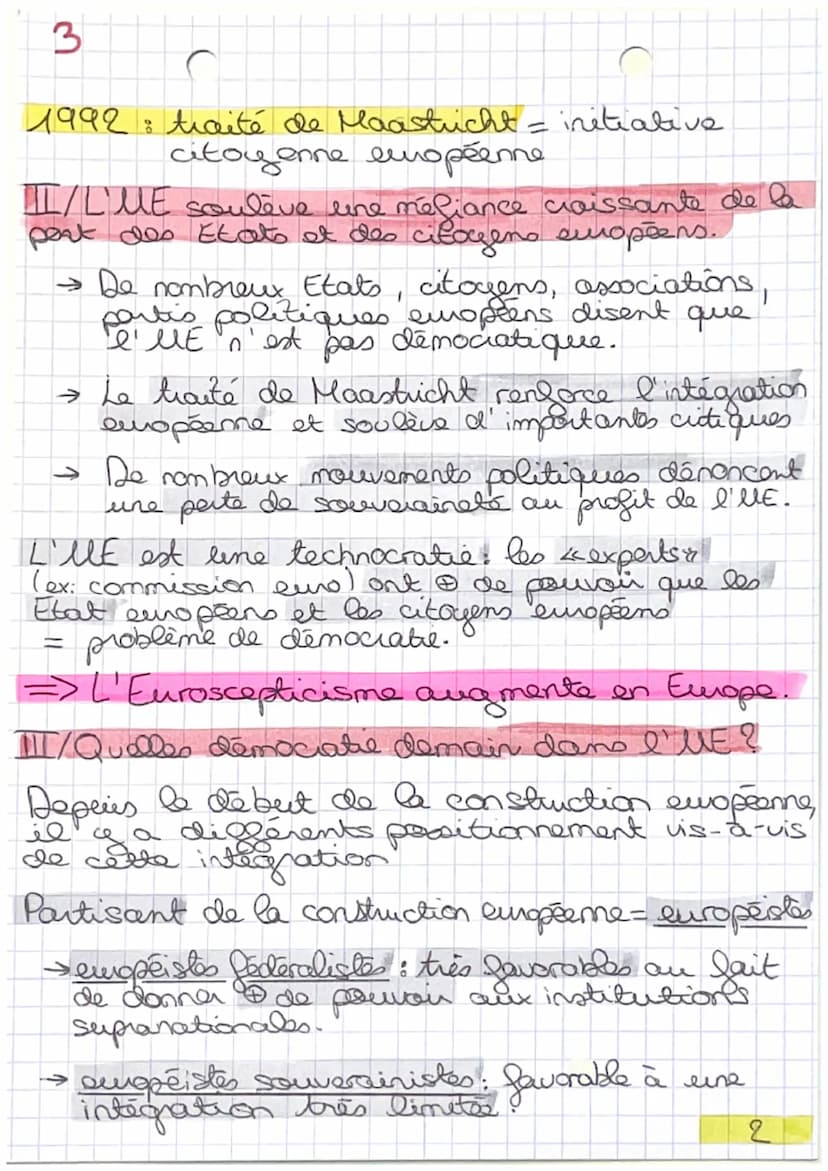 3
1992 : traité de Maastricht = initiative
citoyenne européenne
II/L'UE soulève une méfiance croissante de la
part des Etats et des citoyens européens.
→ De nombreux Etats, citoyens, associations,
partis politiques européens disent que
l'UE n'est pas démocratique.
→ Le traité de Maastricht renforce l'intégration
européenne et soulève d'importantes citiques
→ De nombreux mouvements politiques dénoncent
une perte de souveraineté au profit de l'UE.
L'UE est une technocratie : les «experts»
(ex: commission euro) ont ⊕ de pouvoir que les
Etat européens et les citoyens européens
= problème de démocratie.
=> L'Euroscepticisme augmente en Europe.
III/Quelles démocratie demain dans l'UE ?
Depuis le début de la construction européenne,
il y a différents positionnement vis-à-vis
de cette intégration
Partisant de la construction européenne = européistes
→ européistes fédéralistes : très favorables au fait
de donner ⊕ de pouvoir aux institutions
supranationales.
→ européistes souverainistes : favorable à une
intégration très limitée.
2